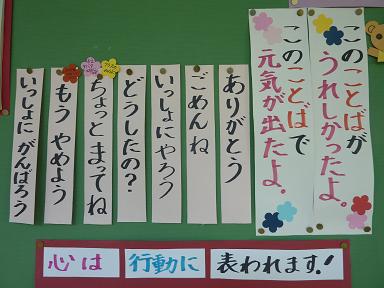 このことばが
うれしかったよ。
このことばで
元気が出たよ。
ありがとう
ごめんね
いっしょにやろう
どうしたの?
ちょっと まってね
もう やめよう
いっしょに がんばろう
心は 行動に 表われます!